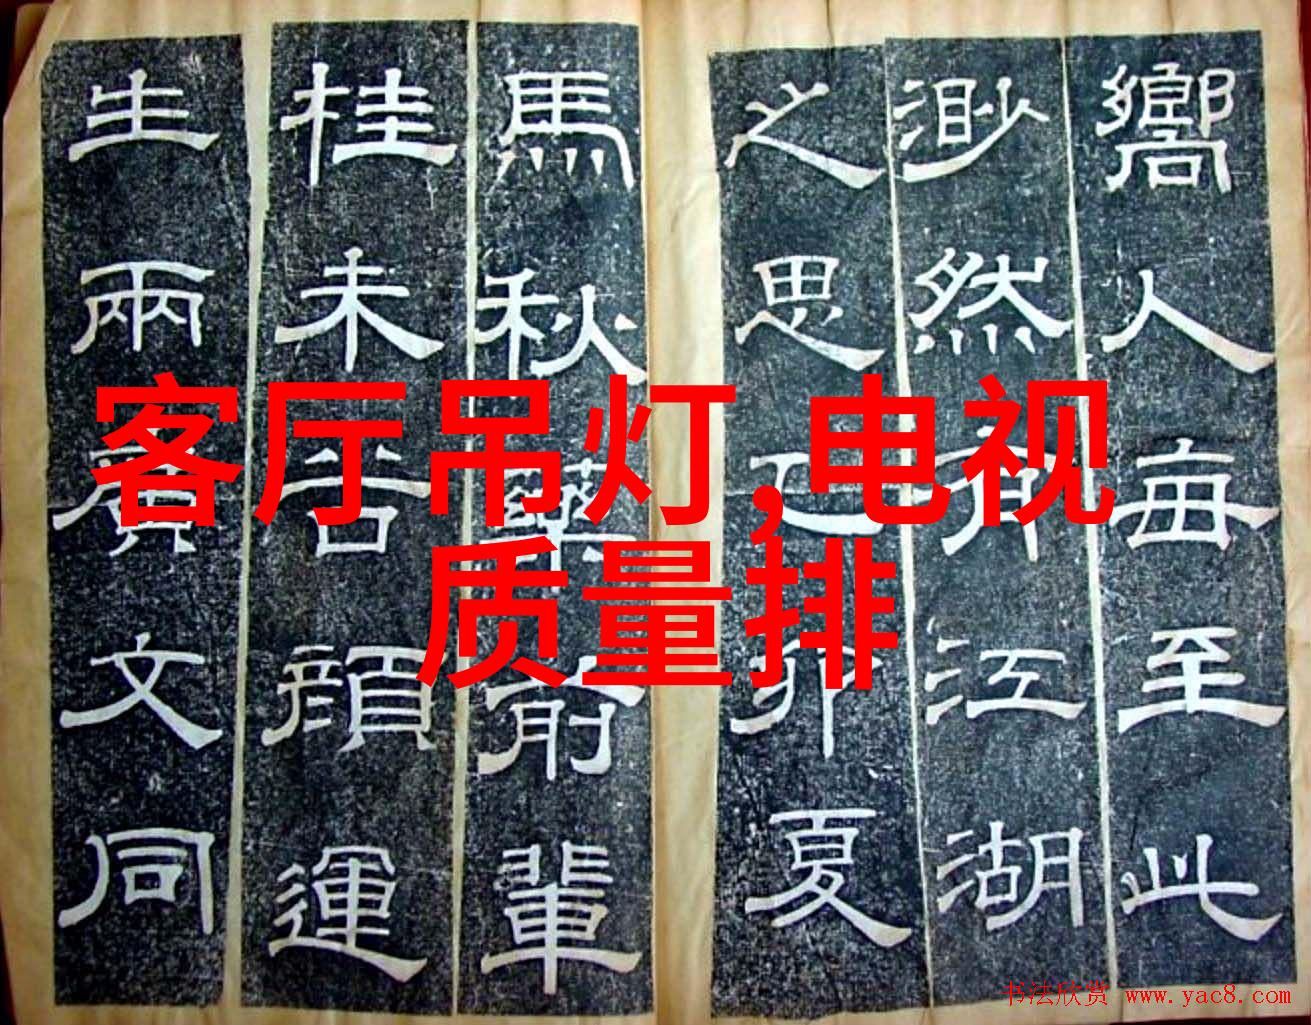 客厅吊灯,电视
质量排
嚮人每至此
渺然有江湖
之思卯夏
馬秋藥前輩
桂未谷顏運
生兩廣文同
书法欣赏 www.yac8.com